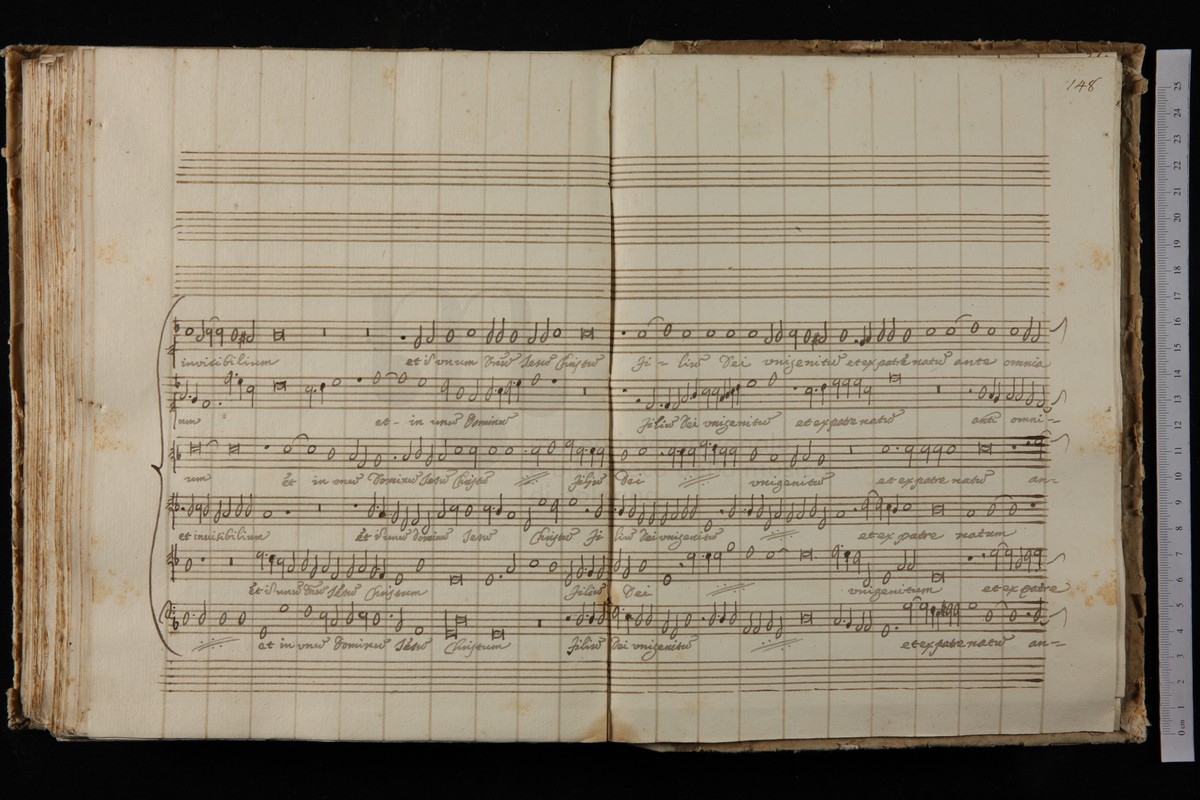 148
invisibilium et i͂ vnum Dn͂u͂ Jesu͂ Christu͂ Fi - liu͂ Dei vnigenitu͂ et ex patre natu͂ ante omnia
num et - in unu͂ Dominu͂ Filiu͂ Dei vnigenitu͂ et ex patre natu͂ omni-
um et in vnu͂ Dominu͂ Jesu͂ Christu͂ Filiu͂ Dei vnigenitu͂ et ex patre natu͂ an-
et invisibilium et i͂ unu͂ dominu͂ Jesu͂ Christu͂ Fi liu͂ Dei vnigenitu͂ et ex patre natum
et i͂ unu͂ Dn͂u͂ Jesu͂ Chrisum Filiu͂ Dei vnigenitum et ex patre
et in vnu͂ Dominu͂ Jesu͂ Christum Filiu͂ Dei vnigenitu͂ et ex patre natu͂ an-
0 cm 1 2 3 4 5 6 7 8 9 10 11 12 13 14 15 16 17 18 19 20 21 22 23 24 25